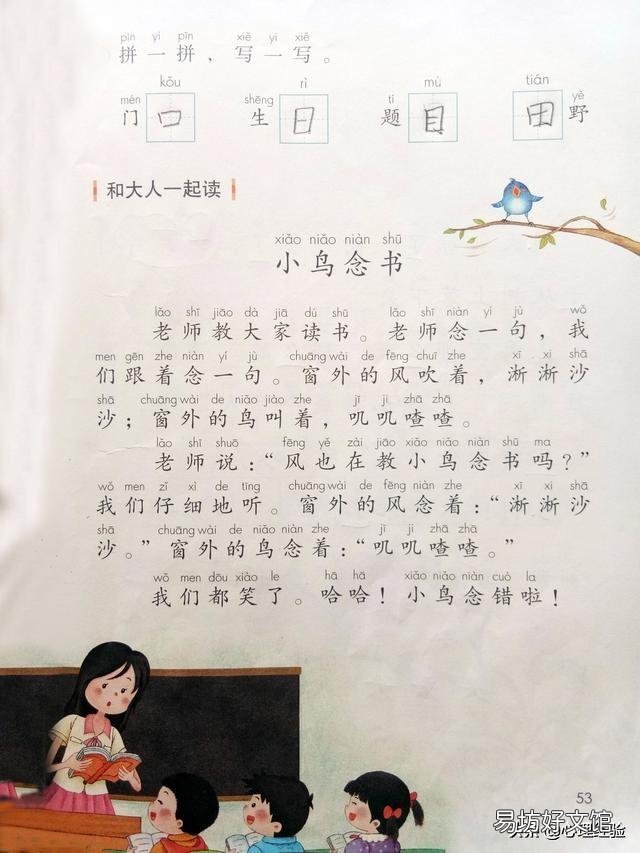 pīn yi pīn xiě yi xiě
拼一拼，写一写。
kǒu rì mù tián
mén shēng tí yě
门口 生日 题目 田野
和大人一起读
xiǎo niǎo niàn shū
小鸟念书
lǎo shī jiāo dà jiā dú shū lǎo shī niàn yí jù wǒ
老师教大家读书。老师念一句，我
men gēn zhe niàn yí jù chuāng wài de fēng chuī zhe xī xī shā
们跟着念一句。窗外的风吹着，淅淅沙
shā chuāng wài de niǎo jiào zhe jī ji zhā zhā
沙；窗外的鸟叫着，叽叽喳喳。
lǎo shī shuō fēng yě zài jiāo xiǎo niǎo niàn shū ma
老师说：“风也在教小鸟念书吗？”
wǒ men zǐ xì de tīng chuāng wài de fēng niàn zhe xī xi shā
我们仔细地听。窗外的风念着：“淅淅沙
shā chuāng wài de niǎo niàn zhe jī ji zhā zhā
沙。”窗外的鸟念着：“叽叽喳喳。”
wǒ men dōu xiào le hā hā xiǎo niǎo niàn cuò la
我们都笑了。哈哈！小鸟念错啦！
53
易坊好文馆